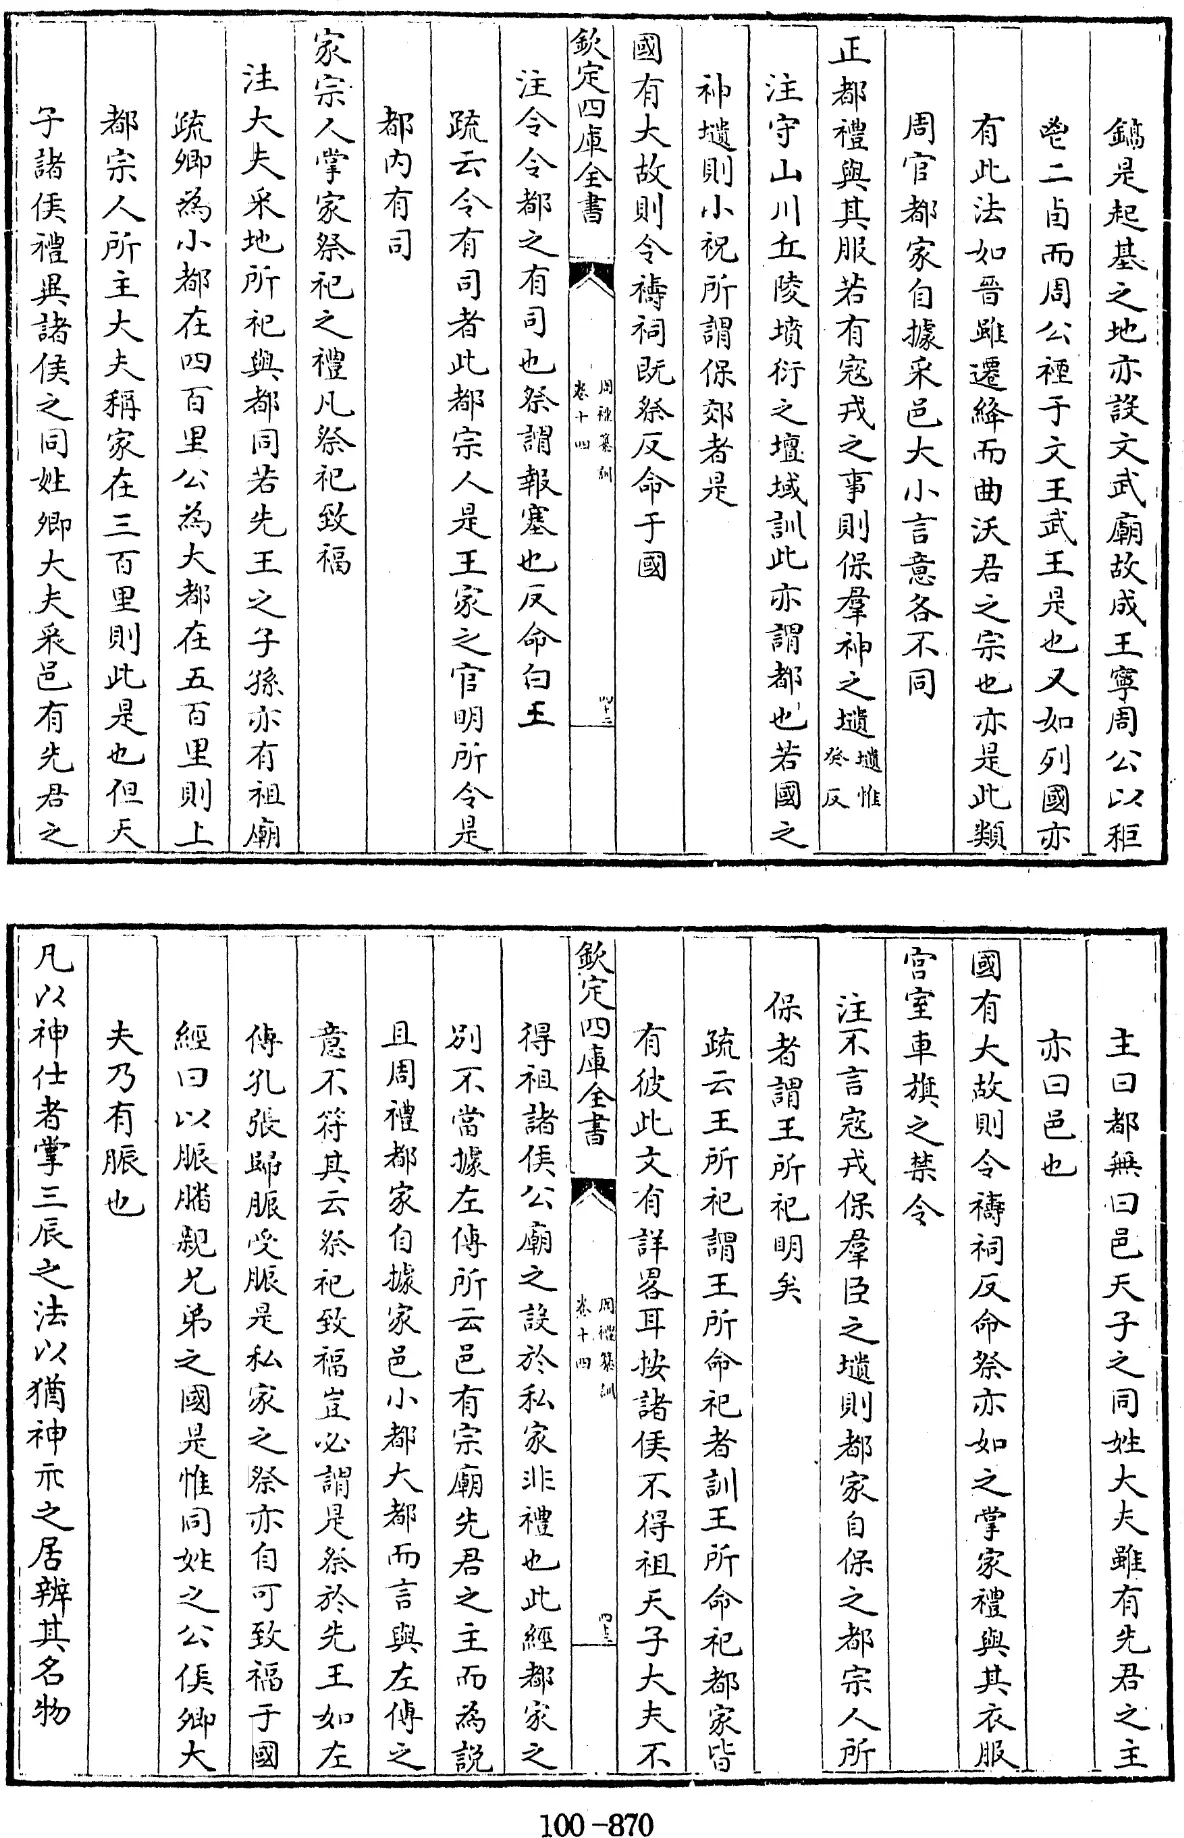 鎬是起基之地亦設文武廟故成王寧周公以秬
鬯二卣而周公禋于文王武王是也又如列國亦
有此法如晉雖遷絳而曲沃君之宗也亦是此類
周官都家自據采邑大小言意各不同
正都禮與其服若有寇戎之事則保羣神之壝壝惟癸反
注守山川丘陵墳衍之壇域訓此亦謂都也若國之
神壝則小祝所謂保郊者是
國有大故則令禱祠既祭反命于國
欽定四庫全書 周禮纂訓 卷十四 四十二
注令令都之有司也祭謂報塞也反命白王
疏云令有司者此都宗人是王家之官明所令是
都内有司
家宗人掌家祭祀之禮凡祭祀致福
注大夫采地所祀與都同若先王之子孫亦有祖廟
疏卿為小都在四百里公為大都在五百里則上
都宗人所主大夫稱家在三百里則此是也但天
子諸侯禮異諸侯之同姓卿大夫采邑有先君之
主曰都無曰邑天子之同姓大夫雖有先君之主
亦曰邑也
國有大故則令禱祠反命祭亦如之掌家禮與其衣服
宫室車旗之禁令
注不言寇戎保羣臣之壝則都家自保之都宗人所
保者謂王所祀明矣
疏云王所祀謂王所命祀者訓王所命祀都家皆
有彼此文有詳畧耳按諸侯不得祖天子大夫不
欽定四庫全書 周禮纂訓 卷十四 四十三
得祖諸侯公廟之設於私家非禮也此經都家之
别不當據左傳所云邑有宗廟先君之主而為説
且周禮都家自據家邑小都大都而言與左傳之
意不符其云祭祀致福豈必謂是祭於先王如左
傳孔張歸脤受脤是私家之祭亦自可致福于國
經曰以脤膰親兄弟之國是惟同姓之公侯卿大
夫乃有脤也
凡以神仕者掌三辰之法以猶神示之居辨其名物
100-870